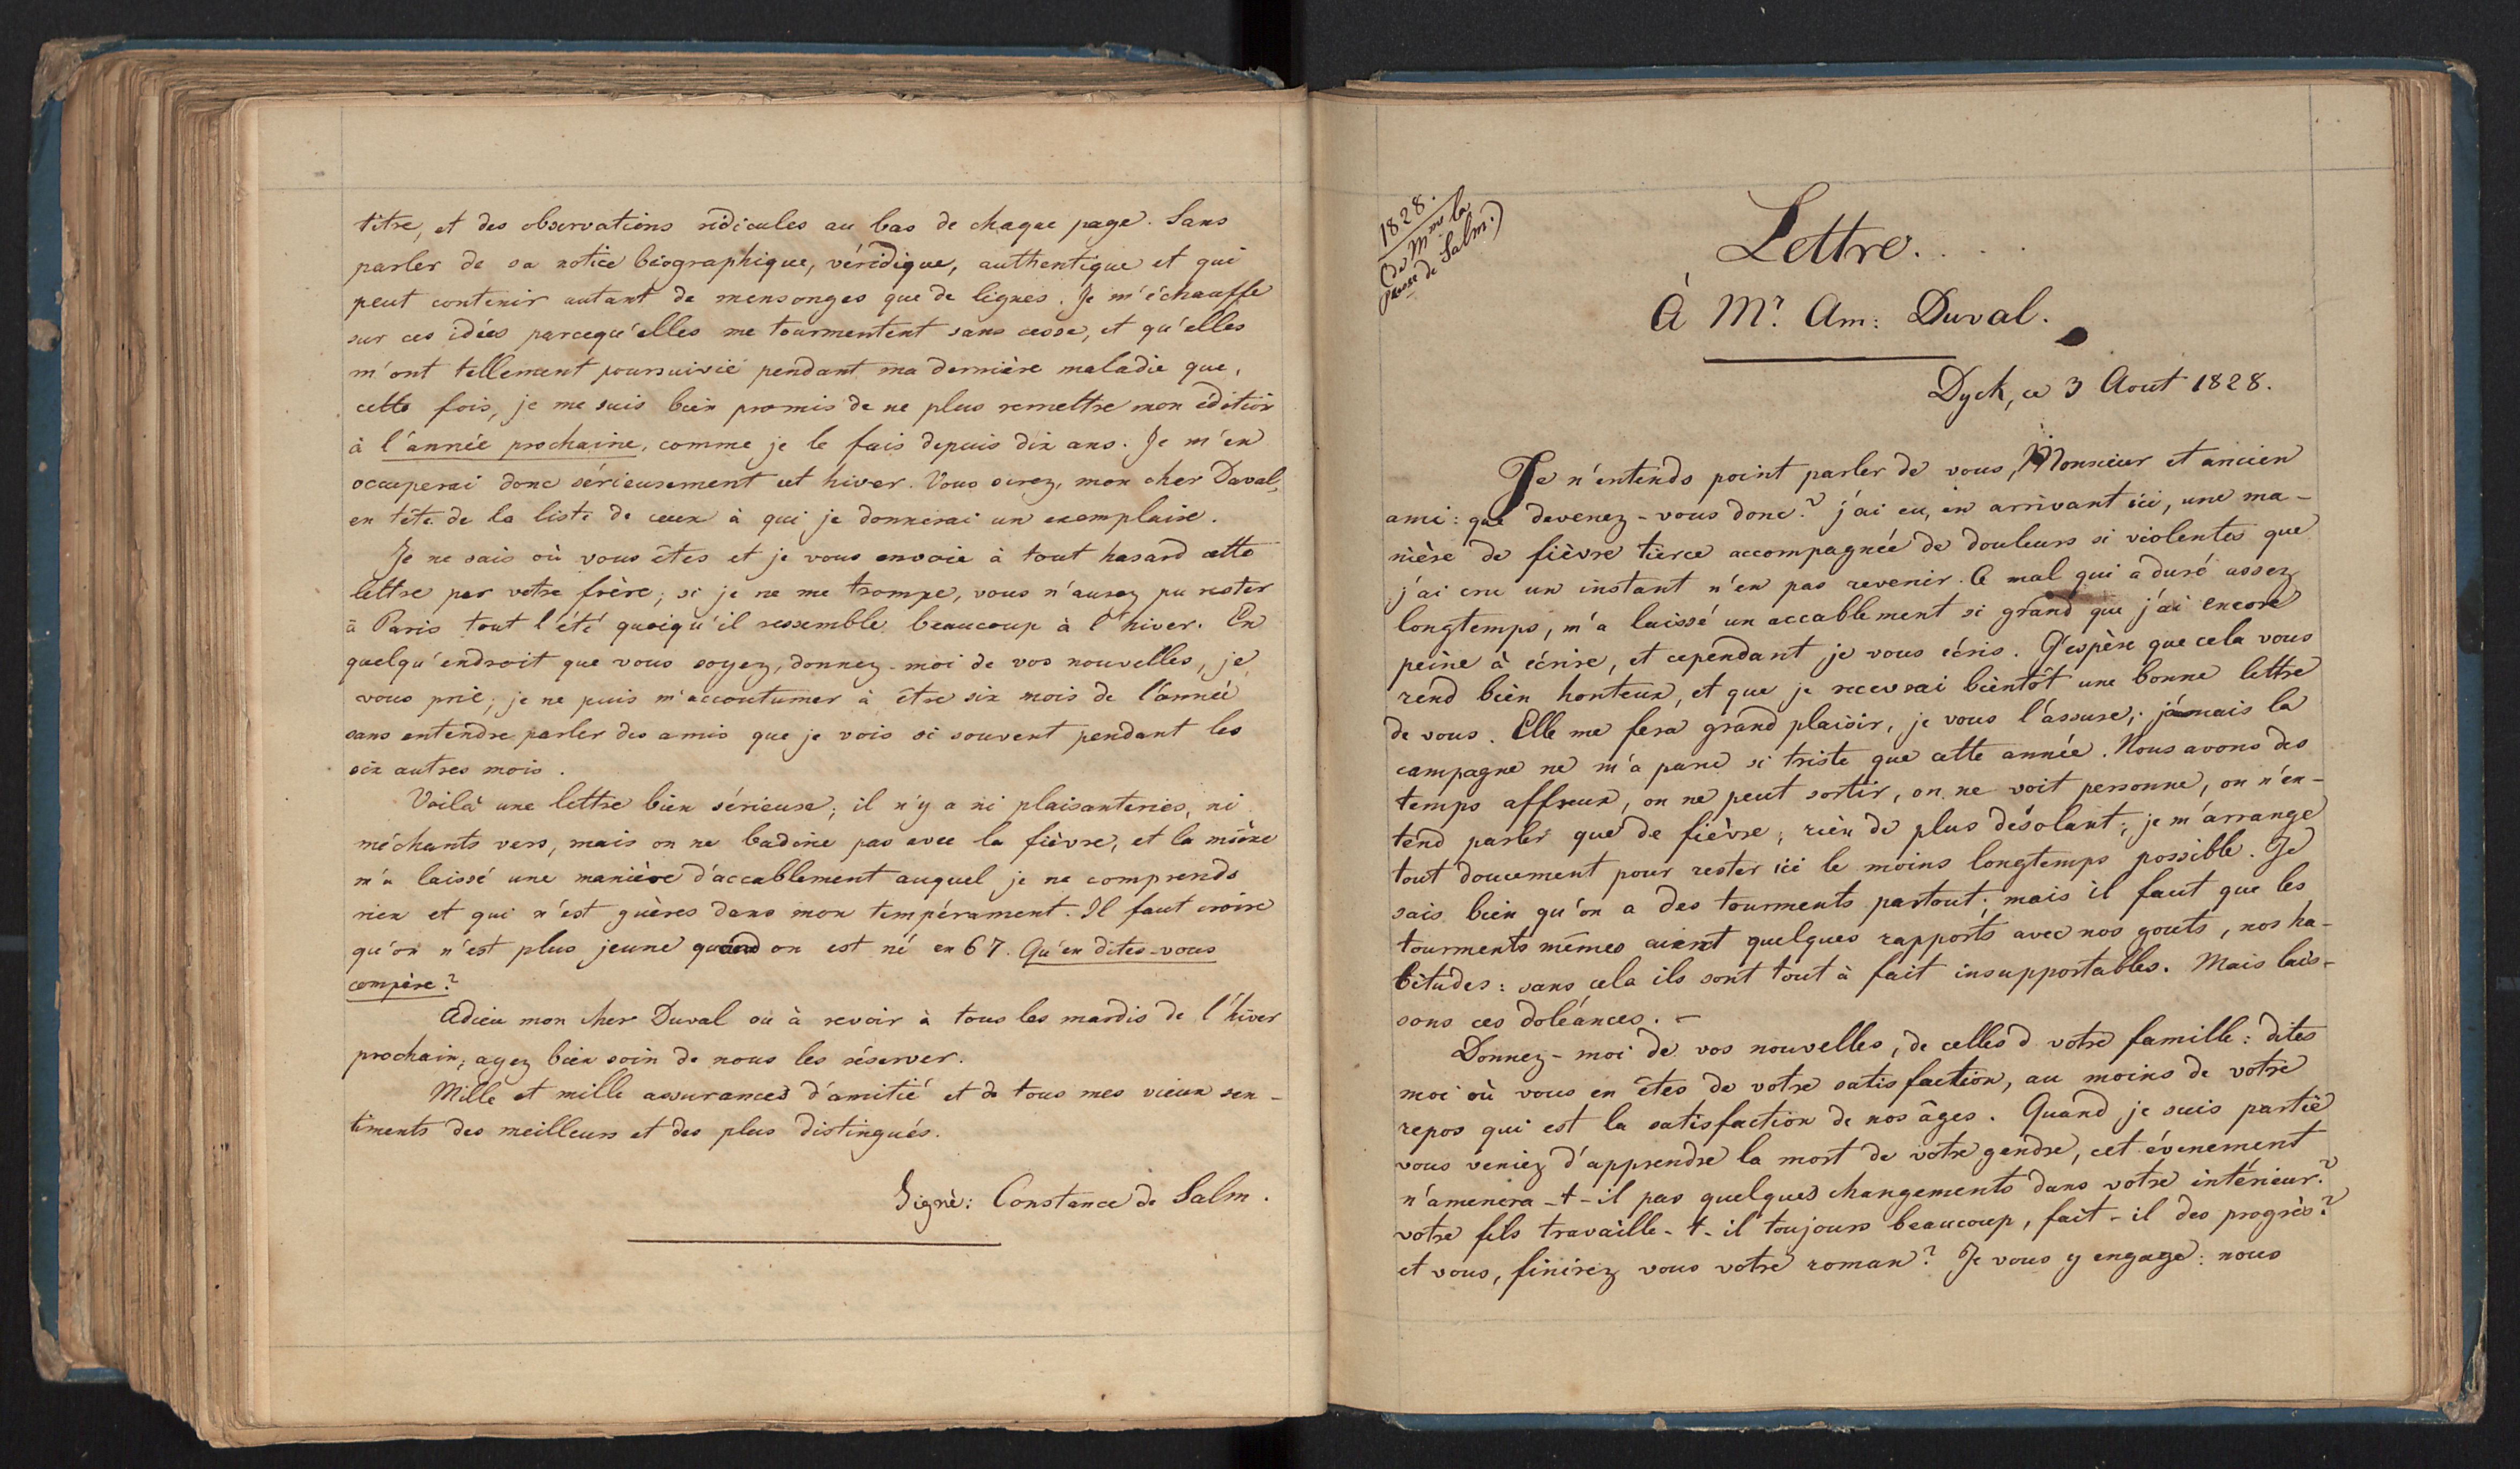 titre, et des observations ridicules au bas de chaque page. Sans
parler de sa notice biographique, véridique, authentique et qui
peut contenir autant de mensonges que de lignes. Je m'échauffe
sur ces idées parcequ'elles me tourmentent sans cesse, et qu'elles
m'ont tellement poursuivie pendant ma dernière maladie que,
cette fois, je me suis bien promis de ne plus remettre mon édition
à l'année prochaine, comme je le fais depuis dix ans. Je m'en
occuperai donc sérieusement cet hiver. Vous serez, mon cher Duval,
en tête de la liste de ceux à qui je donnerai un exemplaire.
Je ne sais où vous êtes et je vous envoie à tout hasard cette
lettre par votre frère; si je ne me trompe, vous n'aurez pu rester
à Paris tout l'été quoiqu'il ressemble beaucoup à l'hiver. En
quelqu'endroit que vous soyez, donnez-moi de vos nouvelles, je
vous prie; je ne puis m'accoutumer à être six mois de l'année
sans entendre parler des amis que je vois si souvent pendant les
six autres mois.
Voilà une lettre bien sérieuse; il n'y a ni plaisanteries, ni
méchants vers, mais on ne badine pas avec la fièvre, et la mienne
m'a laissé une manière d'accablement auquel je ne comprends
rien et qui n'est guères dans mon tempérament. Il faut croire
qu'on n'est plus jeune quand on est né en 67. Qu'en dites-vous
compère?
Adieu mon cher Duval ou à revoir à tous les mardis de l'hiver
prochain; ayez bien soin de nous les réserver.
Mille et mille assurances d'amitié et de tous mes vieux sen-
timents des meilleurs et des plus distingués.
Signé: Constance de Salm.
1828.
(de Mme la
Psse de Salm.)
Lettre. . . .
À Mr. Am: Duval.
Dyck, ce 3 Aout 1828.
Je n'entends point parler de vous, Monsieur et ancien
ami: que devenez-vous donc? j'ai eu, en arrivant ici, une ma-
nière de fièvre tierce accompagnée de douleurs si violentes que
j'ai cru un instant n'en pas revenir. Ce mal qui a duré assez
longtemps, m'a laissé un accablement si grand que j'ai encore
peine à écrire, et cependant je vous écris. J'espère que cela vous
rend bien honteux, et que je recevrai bientôt une bonne lettre
de vous. Elle me fera grand plaisir, je vous l'assure; jamais la
campagne ne m'a paru si triste que cette année. Nous avons des
temps affreux, on ne peut sortir, on ne voit personne, on n'en-
tend parler que de fièvre; rien de plus désolant; je m'arrange
tout doucement pour rester ici le moins longtemps possible. Je
sais bien qu'on a des tourments partout; mais il faut que les
tourments mêmes aient quelques rapports avec nos gouts, nos ha-
bitudes: sans cela ils sont tout à fait insupportables. Mais lais-
sons ces doléances. -
Donnez-moi de vos nouvelles, de celles d votre famille: dites
moi où vous en êtes de votre satisfaction, au moins de votre
repos qui est la satisfaction de nos âges. Quand je suis partie
vous veniez d'apprendre la mort de votre gendre, cet évenement
n'amenera-t-il pas quelques changements dans votre intérieur?
votre fils travaille-t-il toujours beaucoup, fait-il des progrès?
et vous, finirez vous votre roman? Je vous y engage: nous